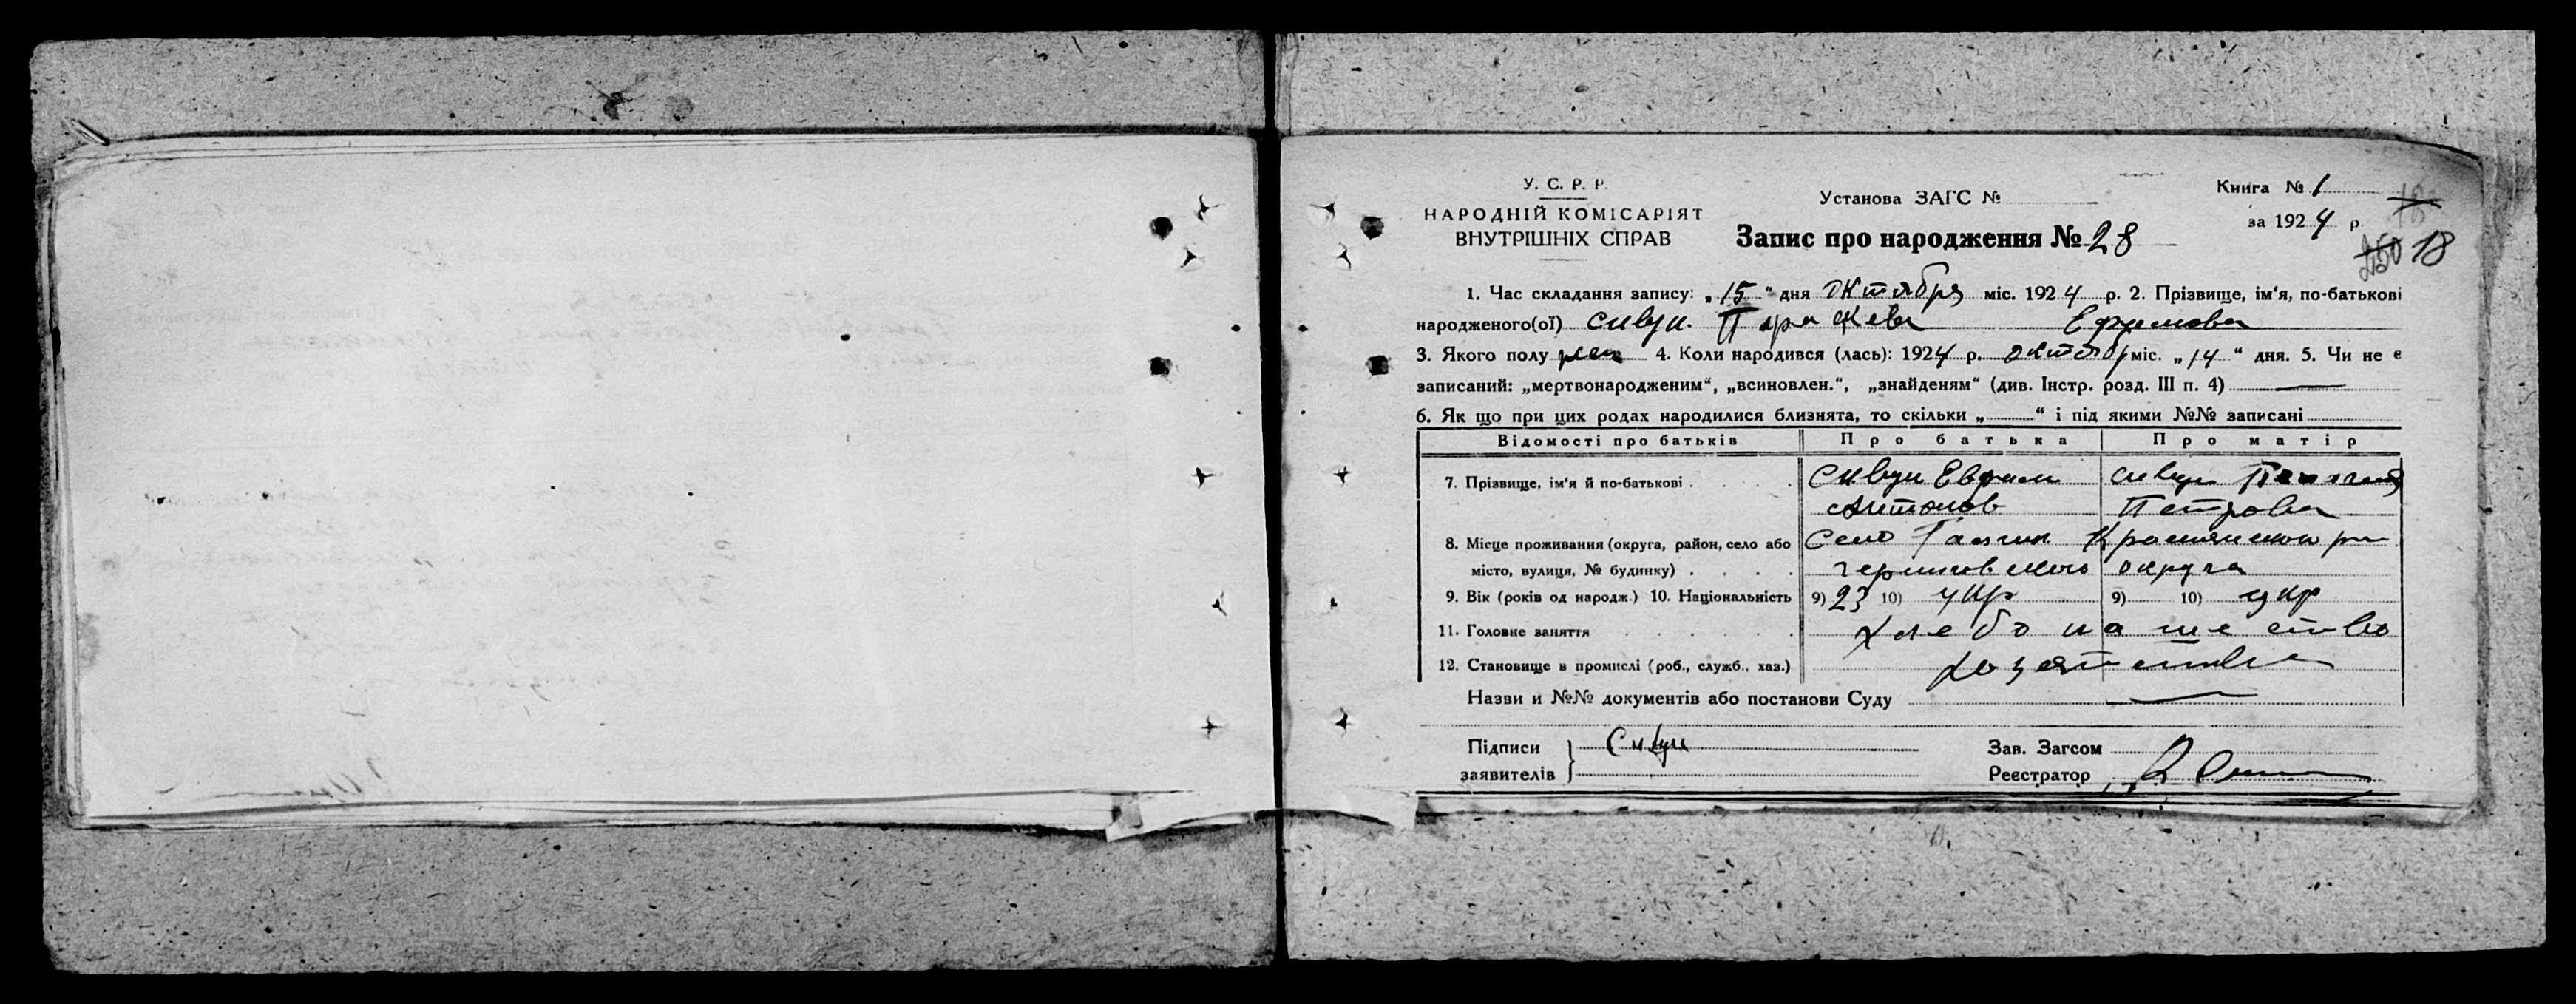 У. С. Р. Р.
НАРОДНІЙ КОМІСАРІЯТ
ВНУТРІШНІХ СПРАВ
Установа ЗАГС №
Запис про народження № 28
Книга № 1
за 1924 р.
18
1. Час складання запису: „15“ дня Октября міс. 1924 р. 2. Прізвище, ім‘я, по-батькові
народженого(ої) Сивун Ефимовна
3. Якого полу жен 4. Коли народився (лась): 1924 р. октябр міс. „14“ дня. 5. Чи не є
записаний: „мертвонародженим“, „всиновлен.“, „знайденям“ (див. Інстр. розд. III п. 4) —
6. Як що при цих родах народилися близнята, то скільки „ “ і під якими №№ записані
Відомості про батьків Про батька Про матір
7. Прізвище, ім‘я й по-батькові Сивун Ефим сивун
Антонов Петровна
8. Місце проживання (округа, район, село або Село
місто, вулиця, № будинку) округа
9. Вік (років од народж.) 10. Національність 9) 23 10) укр 9) 10) укр
11. Головне заняття Хлебопашество
12. Становище в промислі (роб., служб., хаз.)
Назви и №№ документів або постанови Суду —
Підписи Сивун
заявителів
Зав. Загсом
Реєстратор